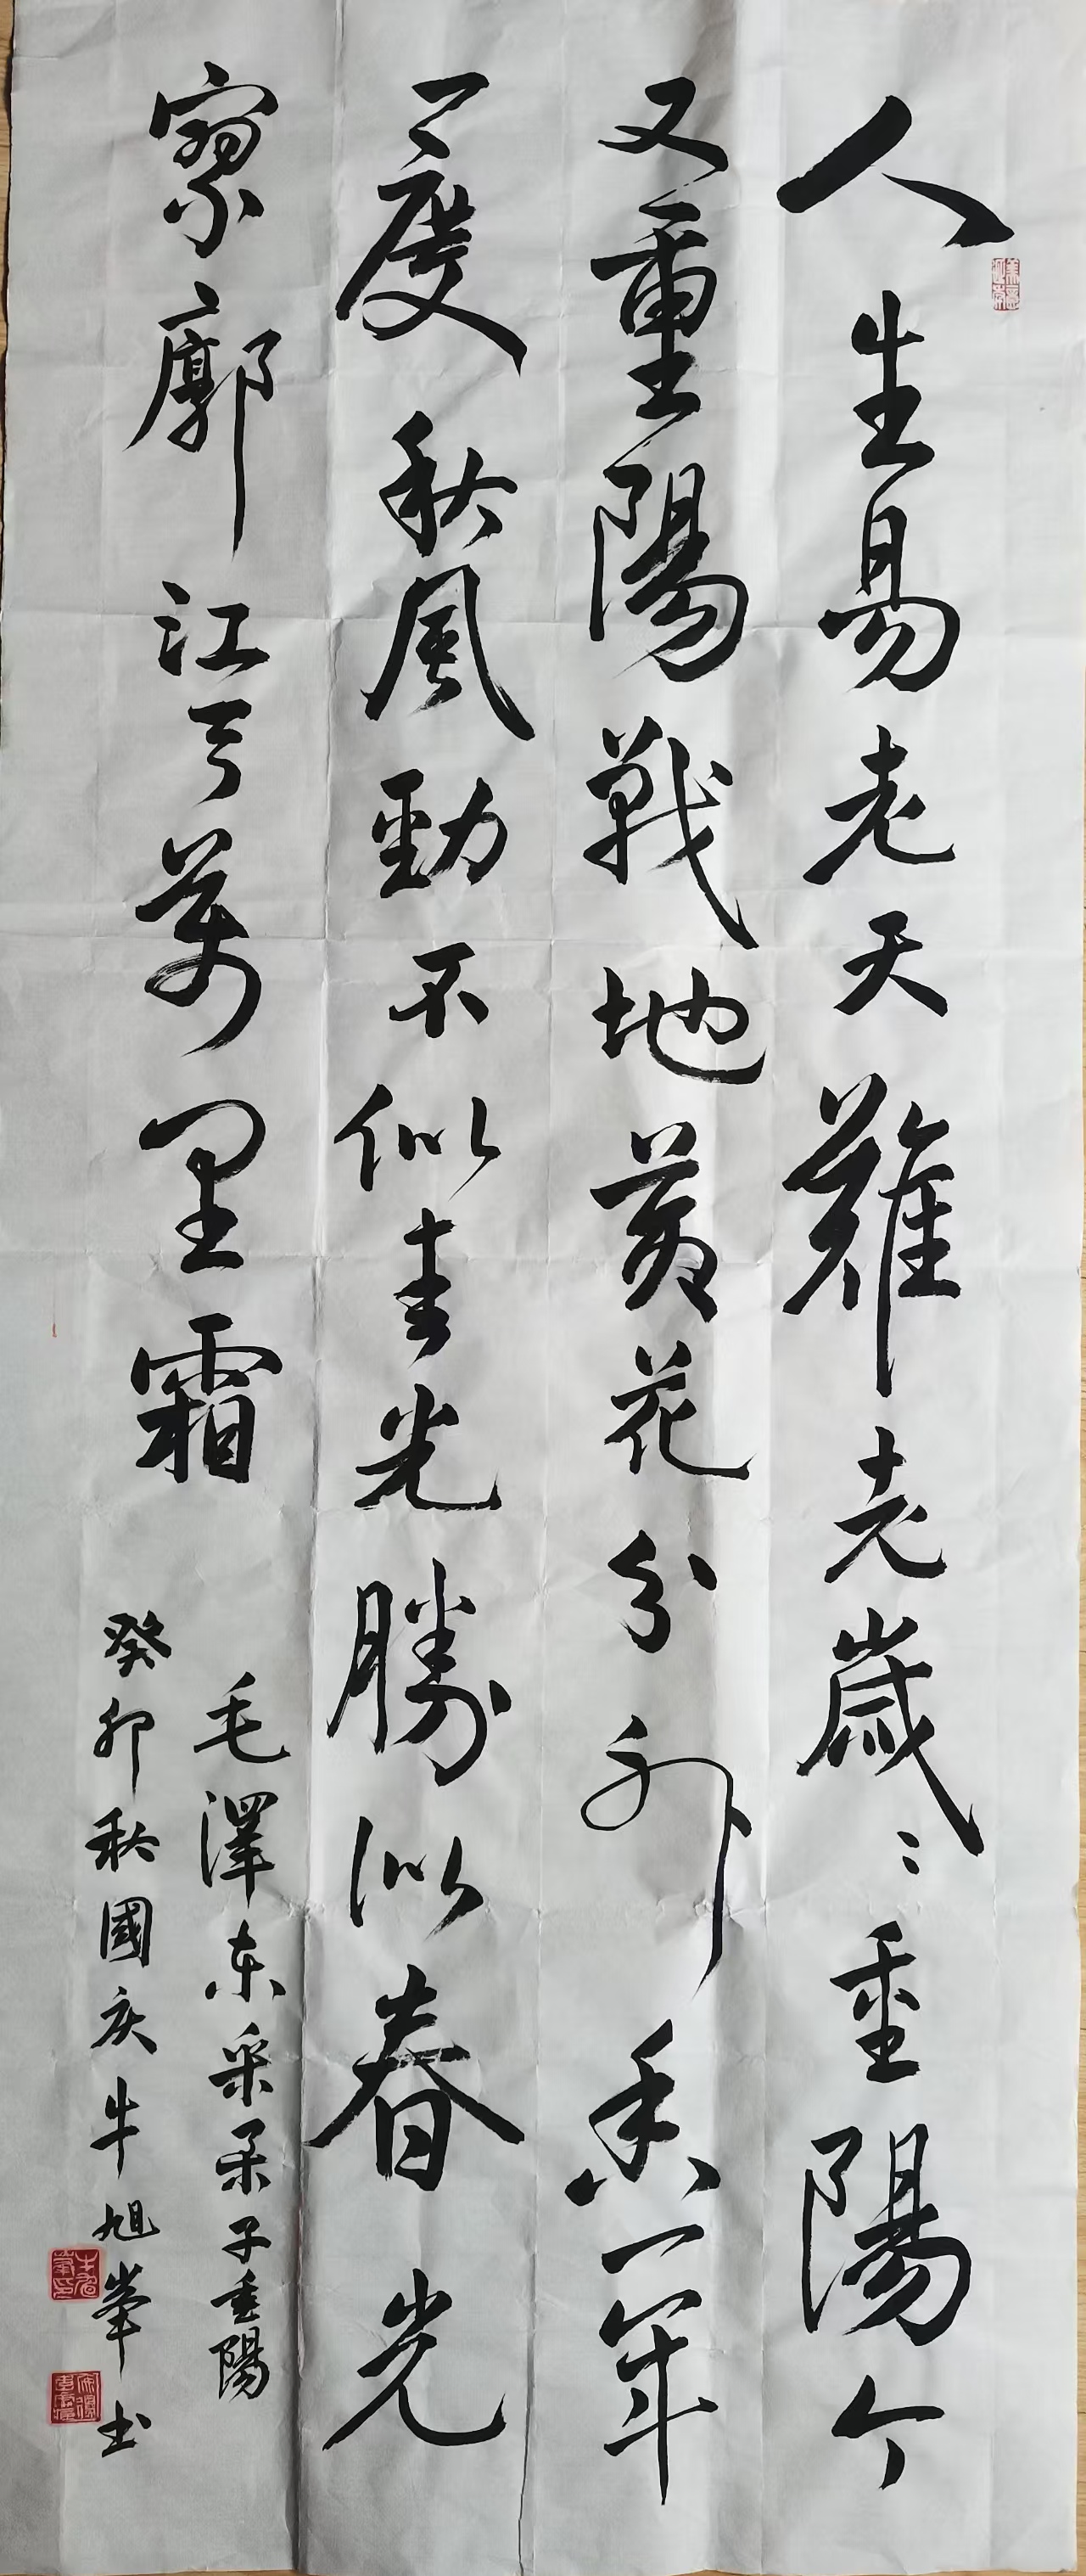 人生易老天難老歲〻重陽今
又重陽戰地黃花分外香一年
一度秋風勁不似春光勝似春光
寥廓江天萬里霜
毛澤东采桑子重陽
癸卯秋國庆牛旭峯书